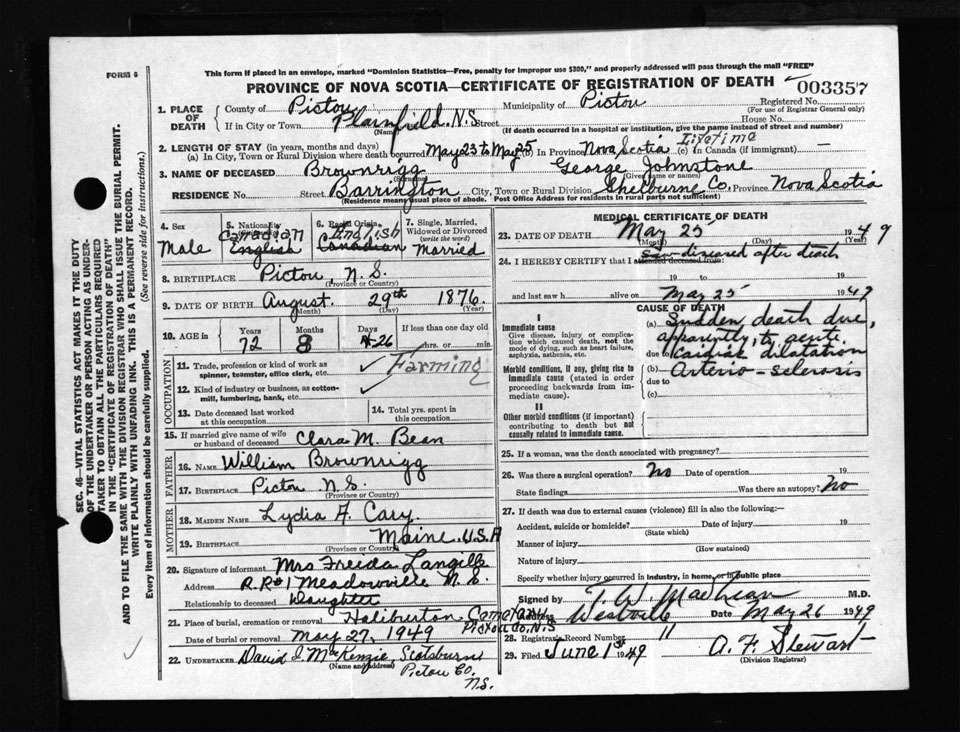 FORM 6
This form if placed in an envelope, marked "Dominion Statistics—Free, penalty for improper use $300," and properly addressed will pass through the mail "FREE"
PROVINCE OF NOVA SCOTIA—CERTIFICATE OF REGISTRATION OF DEATH
003357
1. PLACE OF DEATH
County of Pictou Municipality of Pictou Registered No.
(For use of Registrar General only)
If in City or Town Plainfield, N.S. Street House No.
(Name) (If death occurred in a hospital or institution, give the name instead of street and number)
2. LENGTH OF STAY (in years, months and days)
(a) In City, Town or Rural Division where death occurred May 23 to May 25 (b) In Province Nova Scotia Lifetime (c) In Canada (if immigrant) —
3. NAME OF DECEASED Brownrigg George Johnstone
(Surname) (Given name or names)
RESIDENCE No. Street Barrington City, Town or Rural Division Shelburne Co. Province Nova Scotia
(Residence means usual place of abode. Post Office Address for residents in rural parts not sufficient)
4. Sex Male
5. Nationality Canadian English
6. Racial Origin English Canadian
7. Single, Married, Widowed or Divorced (write the word) Married
8. BIRTHPLACE Pictou, N.S.
(Province or Country)
9. DATE OF BIRTH August 29th 1876
(Month) (Day) (Year)
10. AGE in Years Months Days If less than one day old
72 8 26 hrs. or min.
OCCUPATION
11. Trade, profession or kind of work as spinner, teamster, office clerk, etc. ✓ Farming
12. Kind of industry or business, as cotton-mill, lumbering, bank, etc. ✓
13. Date deceased last worked at this occupation
14. Total yrs. spent in this occupation
15. If married give name of wife or husband of deceased Clara M. Bean
FATHER
16. NAME William Brownrigg
17. BIRTHPLACE Pictou N.S.
(Province or Country)
MOTHER
18. MAIDEN NAME Lydia A. Cary
19. BIRTHPLACE Maine, U.S.A
(Province or Country)
20. Signature of informant Mrs Freida Langille
Address R.R#1 Meadowville N.S.
Relationship to deceased Daughter
21. Place of burial, cremation or removal Haliburton Cemetary Pictou Co, N.S
Date of burial or removal May 27, 1949
22. UNDERTAKER David J. McKenzie, Scotsburn
(Name and address) Pictou Co. N.S.
MEDICAL CERTIFICATE OF DEATH
23. DATE OF DEATH May 25 1949
(Month) (Day) (Year)
24. I HEREBY CERTIFY that I attended deceased from: saw diseased after death
19 to 19
and last saw h alive on May 25 1947
CAUSE OF DEATH
I
Immediate cause
Give disease, injury or complication which caused death, not the mode of dying, such as heart failure, asphyxia, asthenia, etc.
Morbid conditions, if any, giving rise to immediate cause (stated in order proceeding backwards from immediate cause).
II
Other morbid conditions (if important) contributing to death but not causally related to immediate cause.
(a) Sudden death due,
apparently, to acute
due to Cardiac dilatation
(b) Arterio-sclerosis
due to
(c)
25. If a woman, was the death associated with pregnancy?
26. Was there a surgical operation? No Date of operation 19
State findings Was there an autopsy? No
27. If death was due to external causes (violence) fill in also the following:—
Accident, suicide or homicide? Date of injury 19
(State which)
Manner of injury
(How sustained)
Nature of injury
Specify whether injury occurred in industry, in home, or in public place
Signed by T. W. MacLean M.D.
Address Westville Date May 26 1949
28. Registrar's Record Number 11
29. Filed June 1st 1949 A. F. Stewart
(Division Registrar)
SEC. 46—VITAL STATISTICS ACT MAKES IT THE DUTY
OF THE UNDERTAKER OR PERSON ACTING AS UNDERTAKER TO OBTAIN ALL THE PARTICULARS REQUIRED
IN THE "CERTIFICATE OF REGISTRATION OF DEATH"
AND TO FILE THE SAME WITH THE DIVISION REGISTRAR WHO SHALL ISSUE THE BURIAL PERMIT.
WRITE PLAINLY WITH UNFADING INK. THIS IS A PERMANENT RECORD.
Every item of information should be carefully supplied. (See reverse side for instructions.)